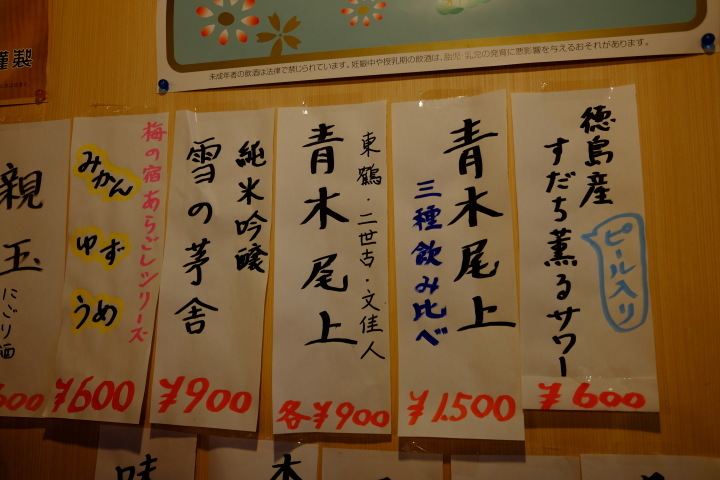 未成年者の飲酒は法律で禁じられています。妊娠中や授乳期の飲酒は、胎児・乳児の発育に悪影響を与えるおそれがあります。
謹製
徳島産
すだち薫るサワー
ピール入り
¥600
青木尾上
三種飲み比べ
¥1.500
東鶴・二世古・文佳人
青木尾上
各¥900
純米吟醸
雪の茅舎
¥900
梅の宿あらごしシリーズ
みかん
ゆず
うめ
¥600
親玉
にごり酒
600
味